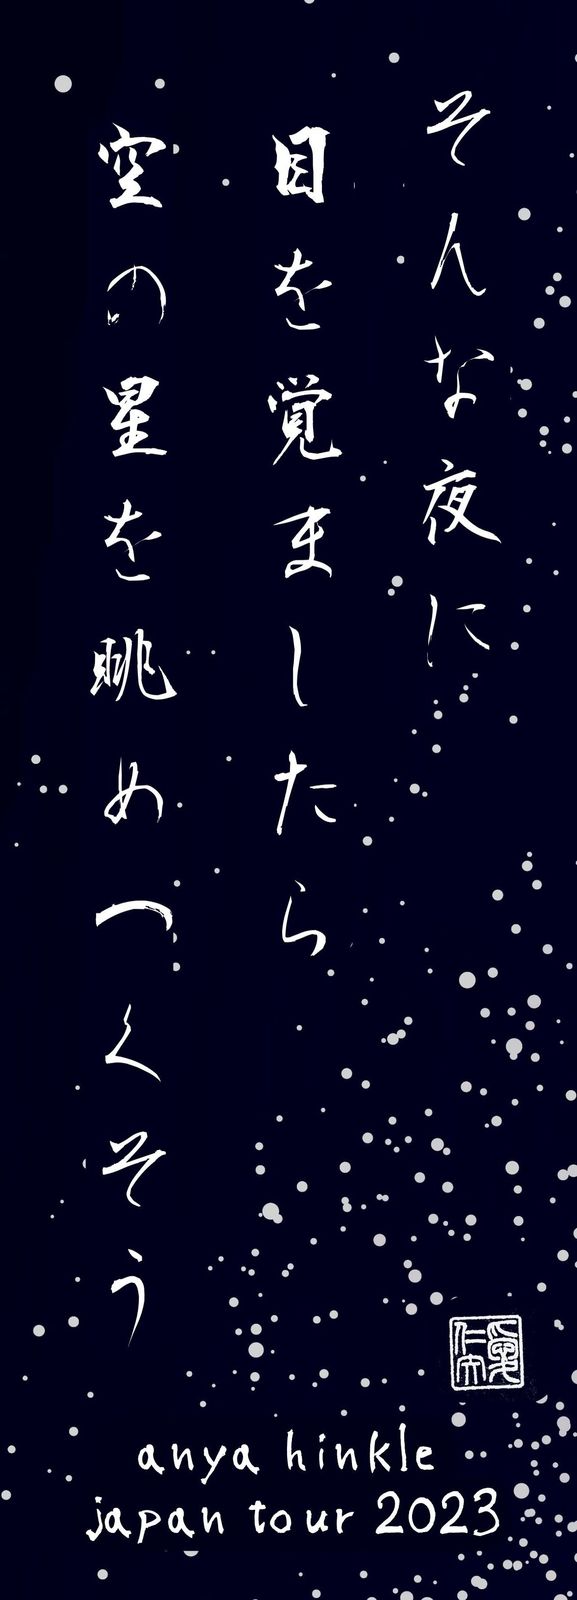 そんな夜に
目を覚ましたら
空の星を眺めつくそう
anya hinkle
japan tour 2023